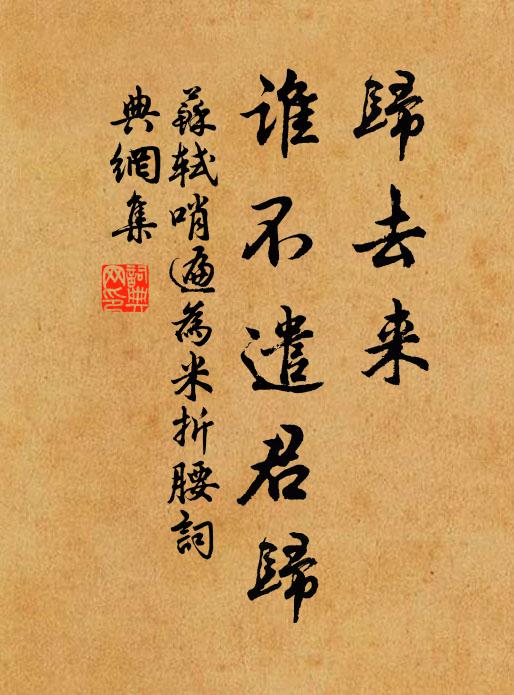 歸去来
誰不遣君歸
蘇軾哨遍為米折腰詞
典網集
詞典網印